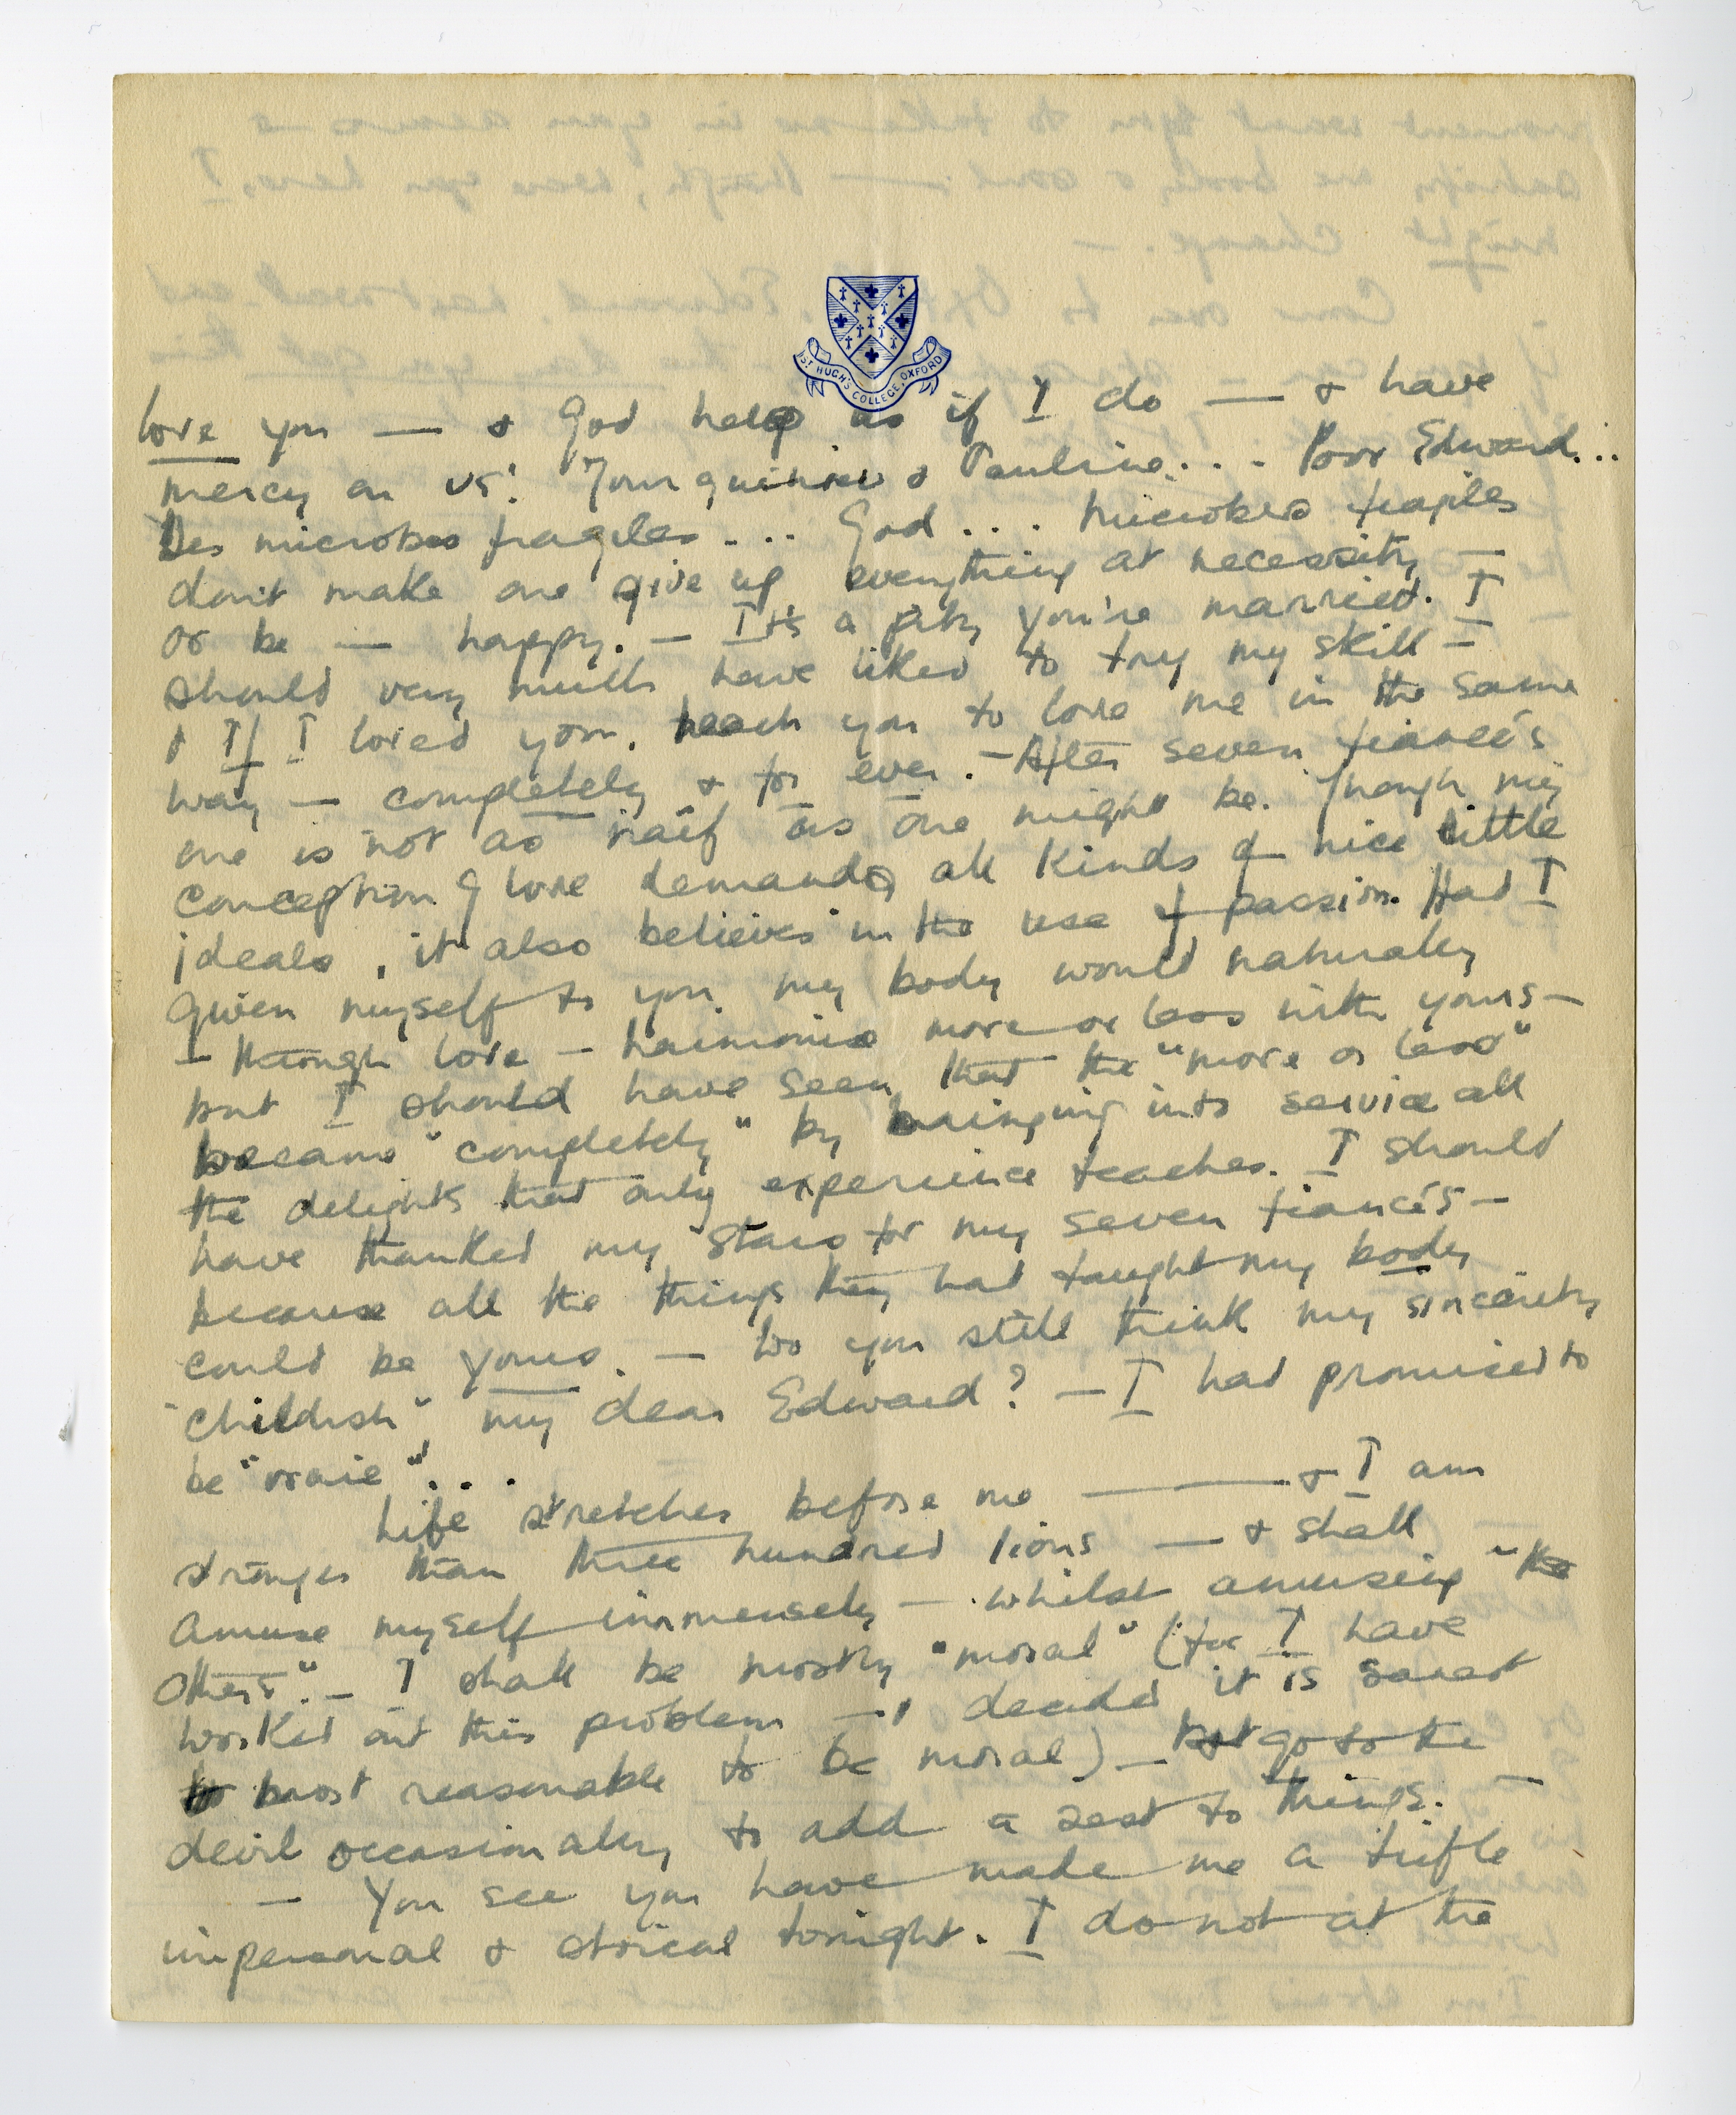 ST HUGH'S COLLEGE, OXFORD
love you — & God help us if I do — & have
mercy on us! Your guinines & Pauline... Poor Edward...
Des microbes fragiles.... God.... Microbes fragiles
don't make one give up everything at necessity —
or be — happy. — It's a pity you're married. I
should very much have liked to try my skill —
& If I loved you, teach you to love me in the same
way — completely & for ever. — After seven fiancés
one is not as naif as one might be. Though my
conception of love demands all kinds of nice little
ideals, it also believes in the use of passion. Had I
given myself to you, my body would naturally
— through love — harmonise more or less with yours —
but I should have seen that the "more or less"
became "completely" by bringing into service all
the delights that only experience teaches. I should
have thanked my stars for my seven fiancés —
because all the things they had taught my body
could be yours. — Do you still think my sincerity
"childish", my dear Edward? — I had promised to
be "vraie"...
Life stretches before me — & I am
stronger than three hundred lions — & shall
amuse myself immensely — whilst amusing "the
others". — I shall be mostly "moral" (for I have
worked out this problem — & decided it is sanest
& most reasonable to be moral) — but go to the
devil occasionally, to add a zest to things. —
— You see you have made me a trifle
impersonal & stoical tonight. I do not at the